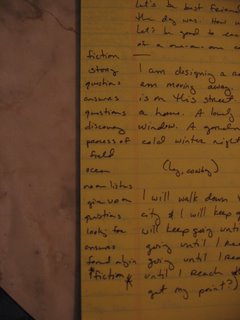 Let's be best friend
the day was. How w
Let's be good to ea
at a one-on-one co
fiction
story
questions
answers
questions
discovery
process of
field
ocean
no one listens
give up on
questions
looking for
answers
found only in
*fiction*
I am designing a
am moving away
is on this street
a home. A lovely
window. A
cold winter nigh
(hey, cowboy)
I will walk down
city & I will keep g
will keep going until
going until I rea
going until I rea
until I reach
get my point?)